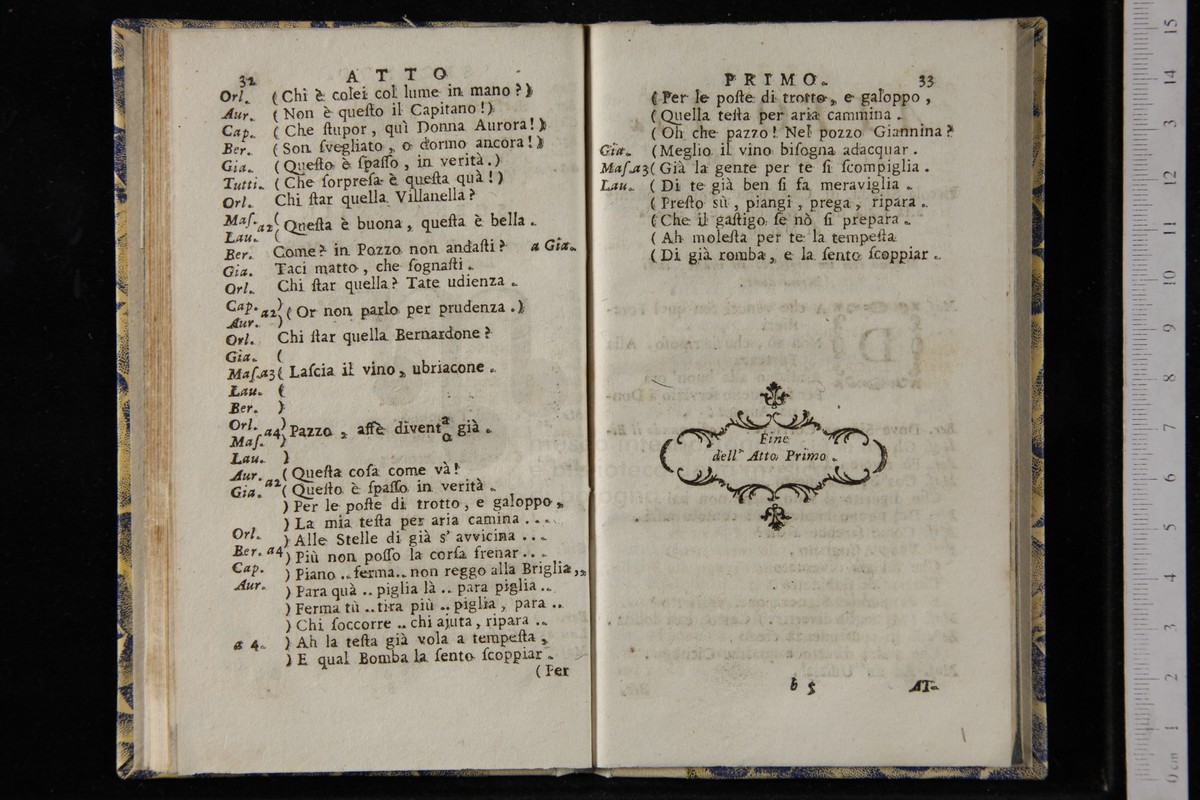 32 ATTO
Orl. (Chi è colei col lume in mano?)
Aur. (Non è queſto il Capitano!)
Cap. (Che ſtupor, quì Donna Aurora!)
Ber. (Son ſvegliato, o dormo ancora!)
Gia. (Queſto è ſpaſſo, in verità.)
Tutti. (Che ſorpreſa è queſta quà!)
Orl. Chi ſtar quella Villanella?
Maſ. a2 ( Queſta è buona, queſta è bella.
Lau. (
Ber. Come? in Pozzo non andaſti? a Gia.
Gia. Taci matto, che ſognaſti.
Orl. Chi ſtar quella? Tate udienza.
Cap. a2 ) (Or non parlo per prudenza.)
Aur. )
Orl. Chi ſtar quella Bernardone?
Gia. (
Maſ. a3 ( Laſcia il vino, ubriacone.
Lau. (
Ber. )
Orl. )
Maſ. a4 ) Pazzo, affè divent a/o già.
Lau. )
Aur. a2 ( Queſta coſa come và!
Gia. ( Queſto è ſpaſſo in verità.
) Per le poſte di trotto, e galoppo,
) La mia teſta per aria camina ....
Orl. ) Alle Stelle di già s' avvicina ...
Ber. a4 ) Più non poſſo la corſa frenar...
Cap. ) Piano .. ferma.. non reggo alla Briglia,,
Aur. ) Para quà .. piglia là .. para piglia ..
) Ferma tù .. tira più .. piglia, para ..
) Chi ſoccorre .. chi ajuta, ripara ..
a 4. ) Ah la teſta già vola a tempeſta,
) E qual Bomba la ſento ſcoppiar.
(Per
PRIMO. 33
(Per le poſte di trotto, e galoppo,
(Quella teſta per aria cammina.
(Oh che pazzo! Nel pozzo Giannina?
Gia. (Meglio il vino biſogna adacquar.
Maſ. a3 (Già la gente per te ſi ſcompiglia.
Lau. (Di te già ben ſi fa meraviglia.
(Preſto sù, piangi, prega, ripara.
(Che il gaſtigo ſe nò ſi prepara.
(Ah moleſta per te la tempeſta
(Di già romba, e la ſento ſcoppiar.
Fine
dell' Atto Primo.
b 5 AT-